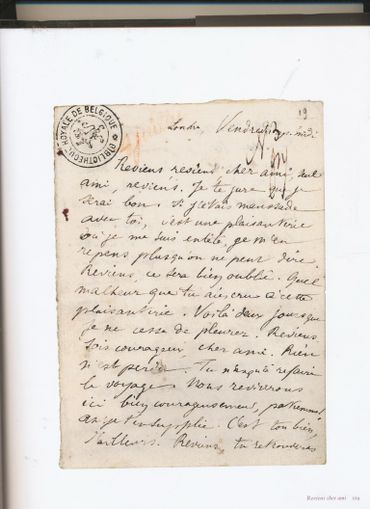 BIBLIOTHÈQUE ROYALE DE BELGIQUE
19
Londres, Vendredi ap. midi
Reviens reviens, cher ami, seul
ami, reviens. Je te jure que je
serai bon. Si j'étais maussade
avec toi, c'est une plaisanterie
où je me suis entêté, je m'en
repens plus qu'on ne peut dire.
Reviens, ce sera bien oublié. Quel
malheur que tu aies cru à cette
plaisanterie. Voilà deux jours que
je ne cesse de pleurer. Reviens.
Sois courageux, cher ami. Rien
n'est perdu. Tu n'as qu'à refaire
le voyage. Nous revivrons
ici bien courageusement, patiemment.
Ah je t'en supplie. C'est ton bien,
d'ailleurs. Reviens, tu retrouveras
Reviens cher ami